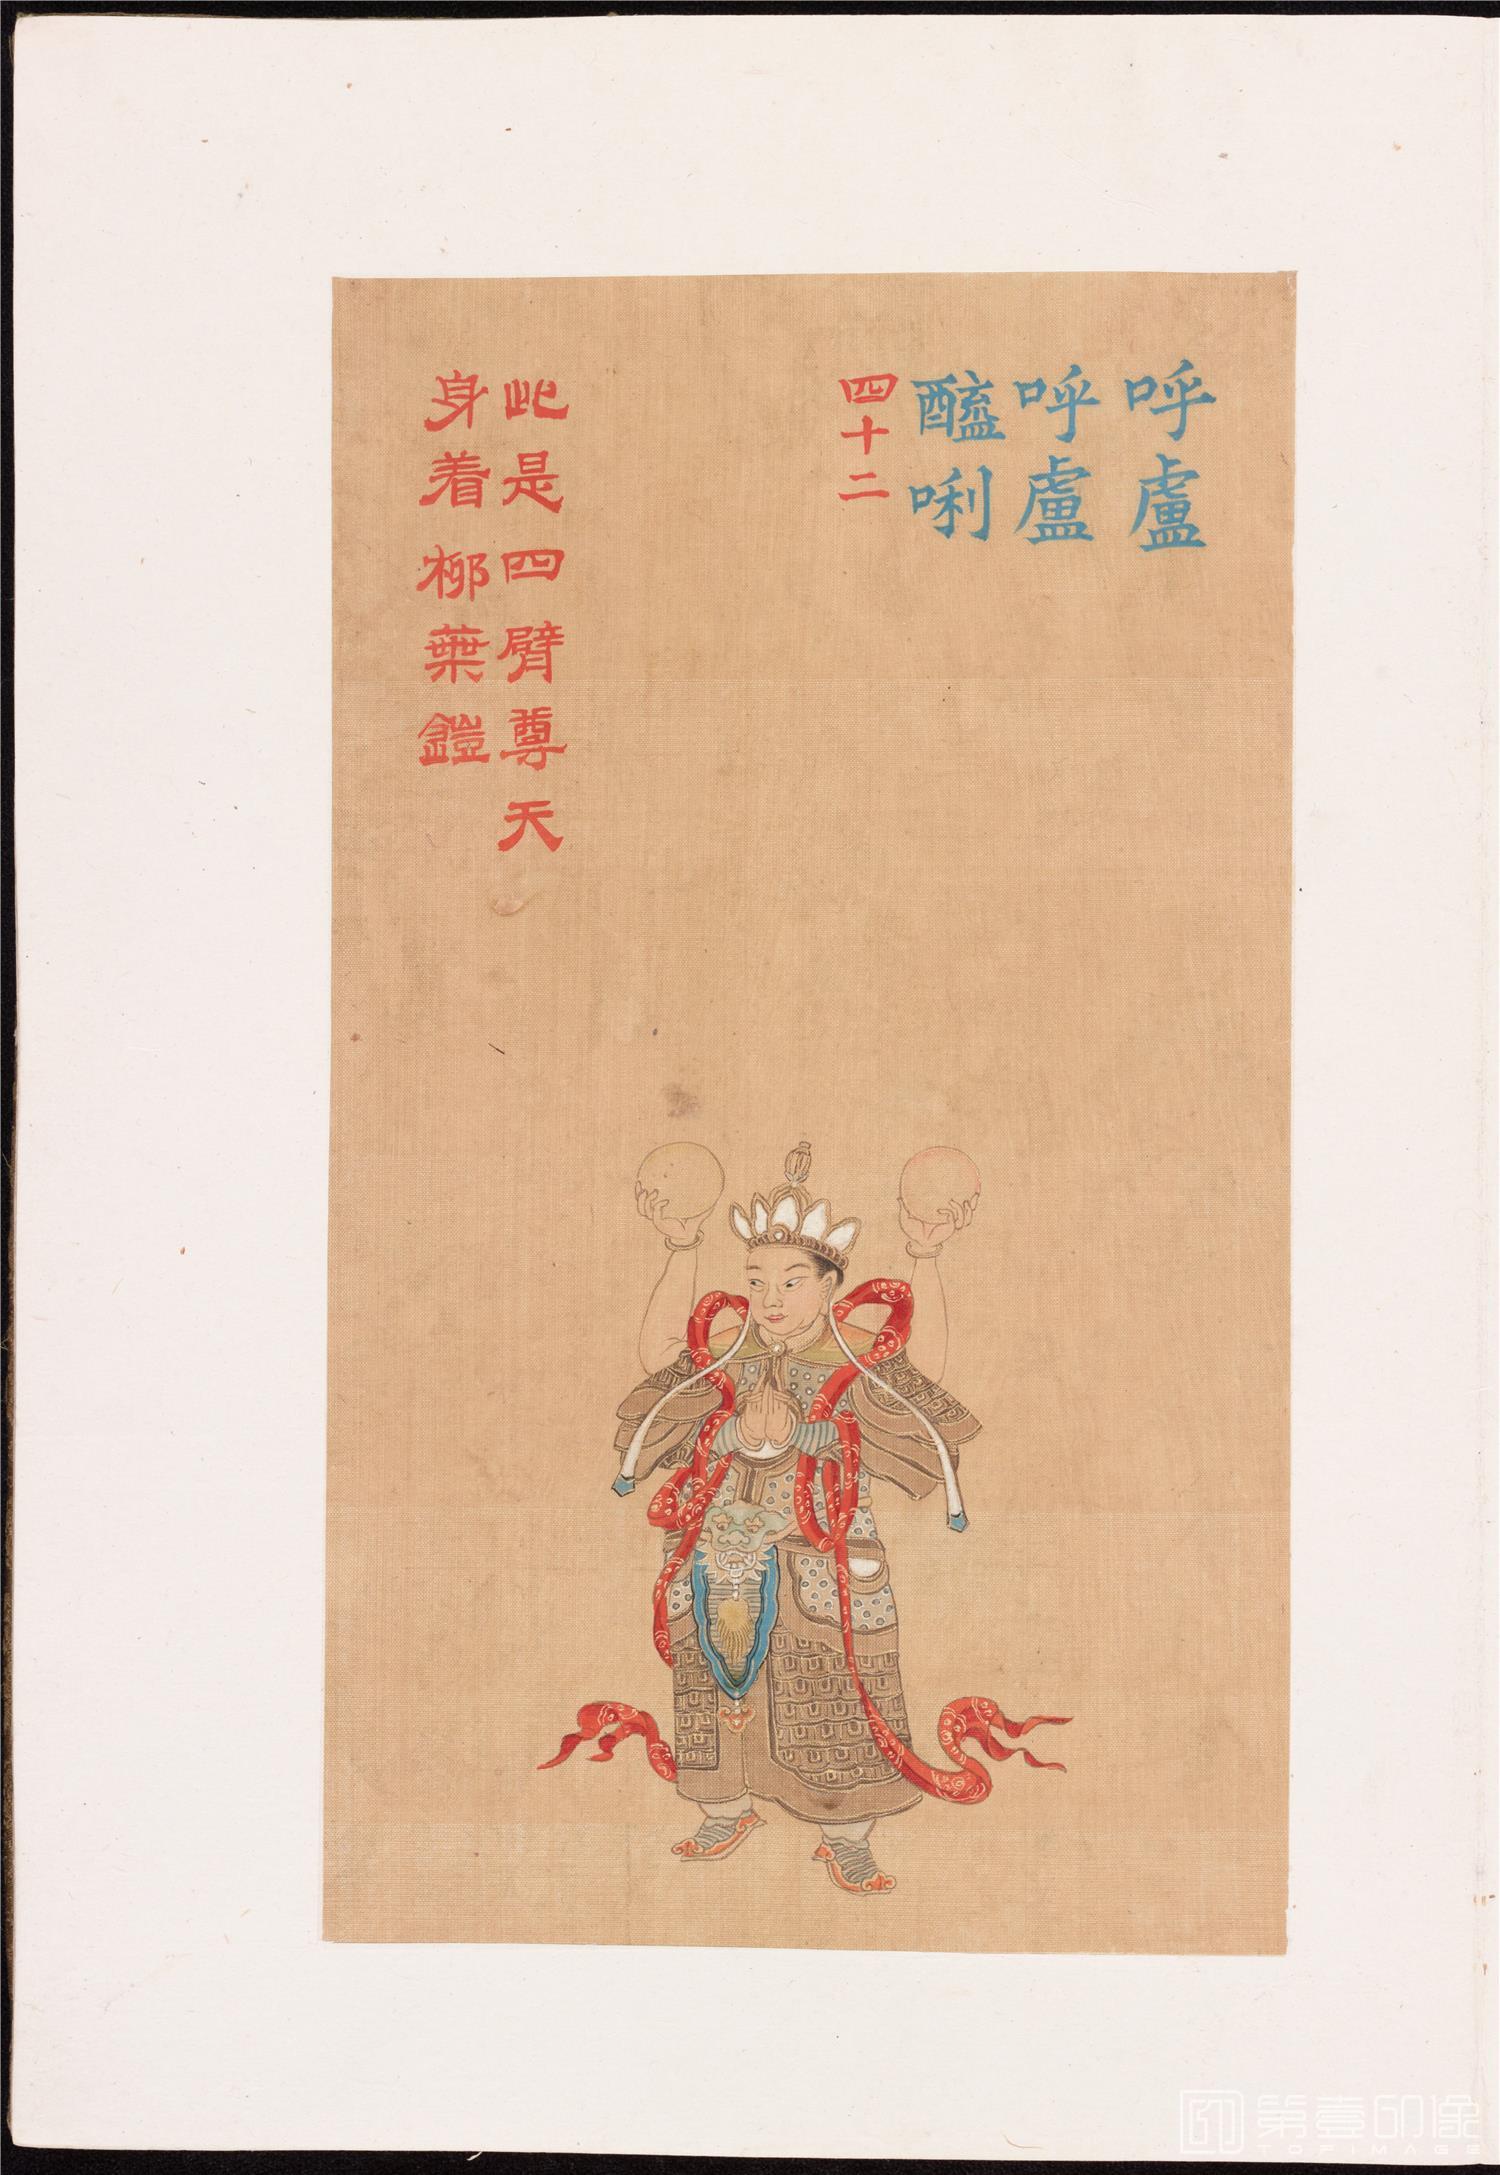 呼盧
呼盧
醯唎
四十二
此是四臂尊天
身着柳葉鎧
第壹印像
TOPIMAGE